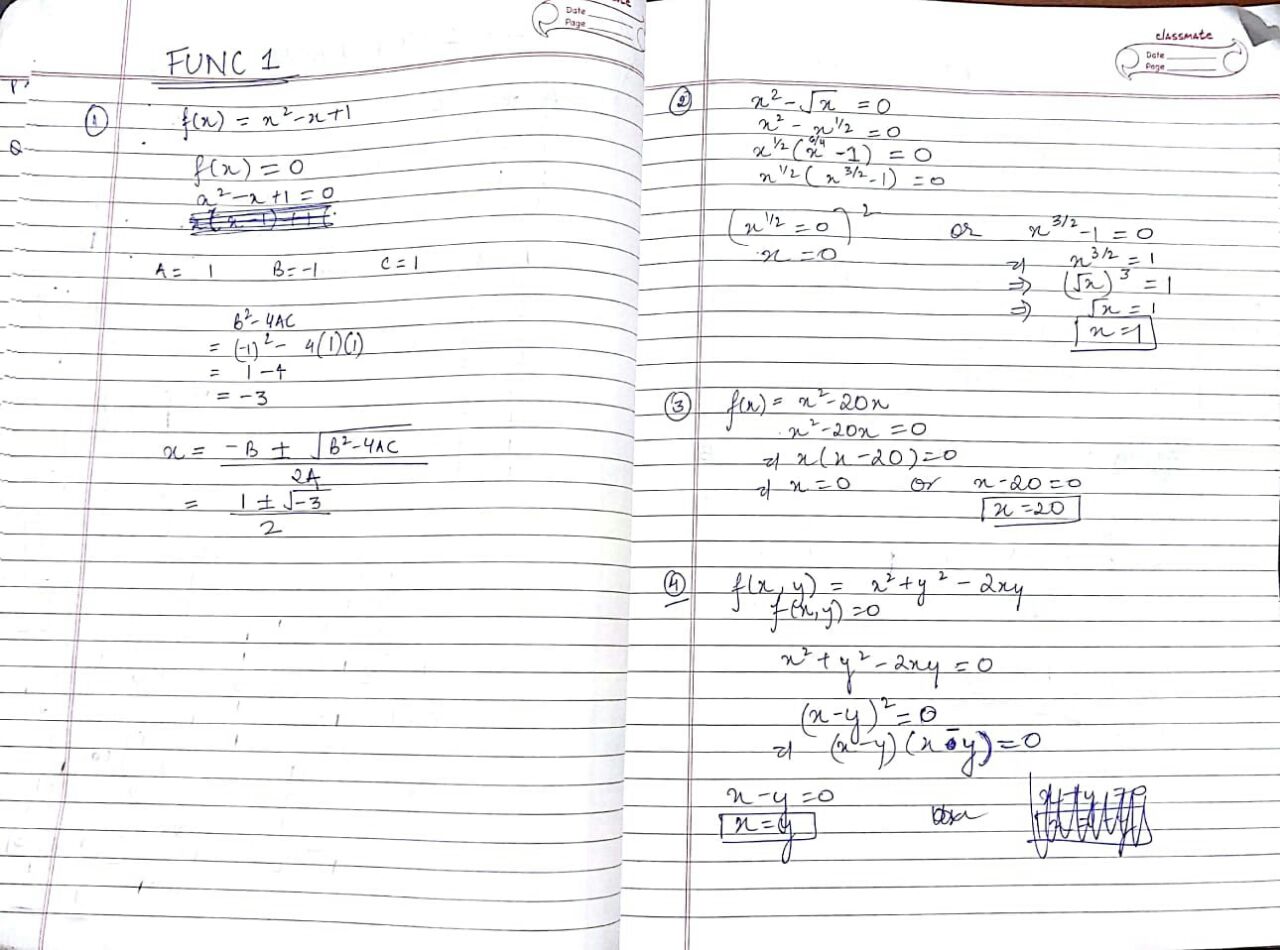 Date
Page
FUNC 1
① f(x) = x² - x + 1
f(x) = 0
x² - x + 1 = 0
A = 1 B = -1 C = 1
B² - 4AC
= (-1)² - 4(1)(1)
= 1 - 4
= -3
x = -B ± √B² - 4AC
2A
= 1 ± √-3
2
classmate
Date
Page
② x² - √x = 0
x² - x^1/2 = 0
x^1/2 (x^6/4 - 1) = 0
x^1/2 (x^3/2 - 1) = 0
(x^1/2 = 0)² or x^3/2 - 1 = 0
x = 0 ⇒ x^3/2 = 1
⇒ (√x)³ = 1
⇒ √x = 1
x = 1
③ f(x) = x² - 20x
x² - 20x = 0
⇒ x(x - 20) = 0
⇒ x = 0 or x - 20 = 0
x = 20
④ f(x, y) = x² + y² - 2xy
f(x, y) = 0
x² + y² - 2xy = 0
(x - y)² = 0
⇒ (x - y)(x - y) = 0
x - y = 0
x = y